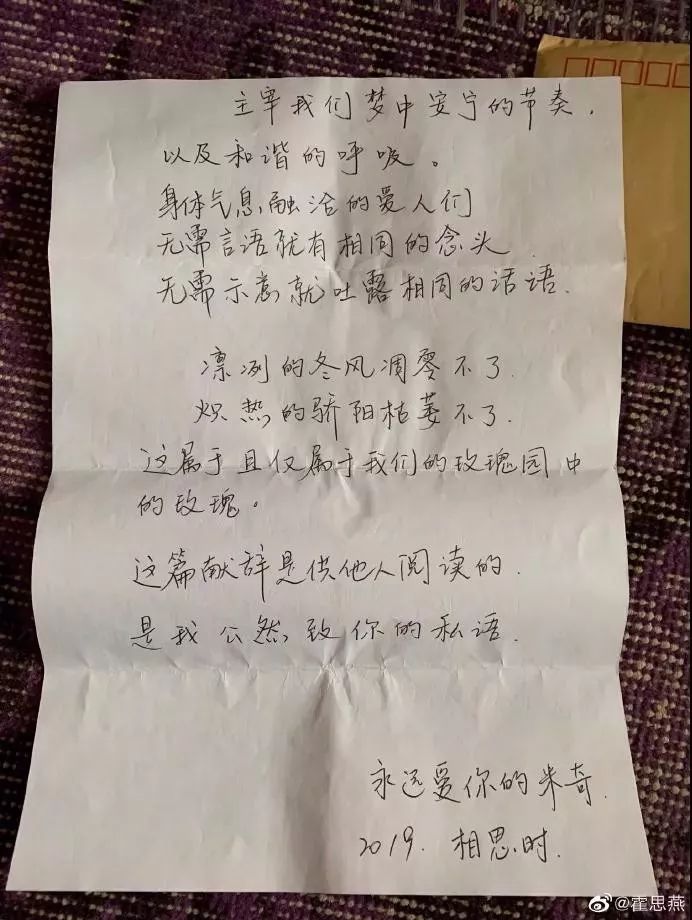 主宰我们梦中安宁的节奏，
以及和谐的呼吸。
身体气息融洽的爱人们
无需言语就有相同的念头
无需示意就吐露相同的话语.
凛冽的冬风凋零不了.
炽热的骄阳枯萎不了.
这属于且仅属于我们的玫瑰园中
的玫瑰。
这篇献辞是供他人阅读的.
是我公然致你的私语.
永远爱你的米奇.
2019. 相思时.
@霍思燕